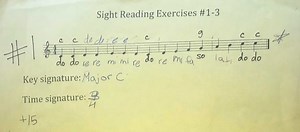 Sight Reading Exercises #1-3
#1
c c c g c c
do do re re mi mi re do re mi fa so la ti do do
Key signature: Major C
Time signature: 3/4
+15